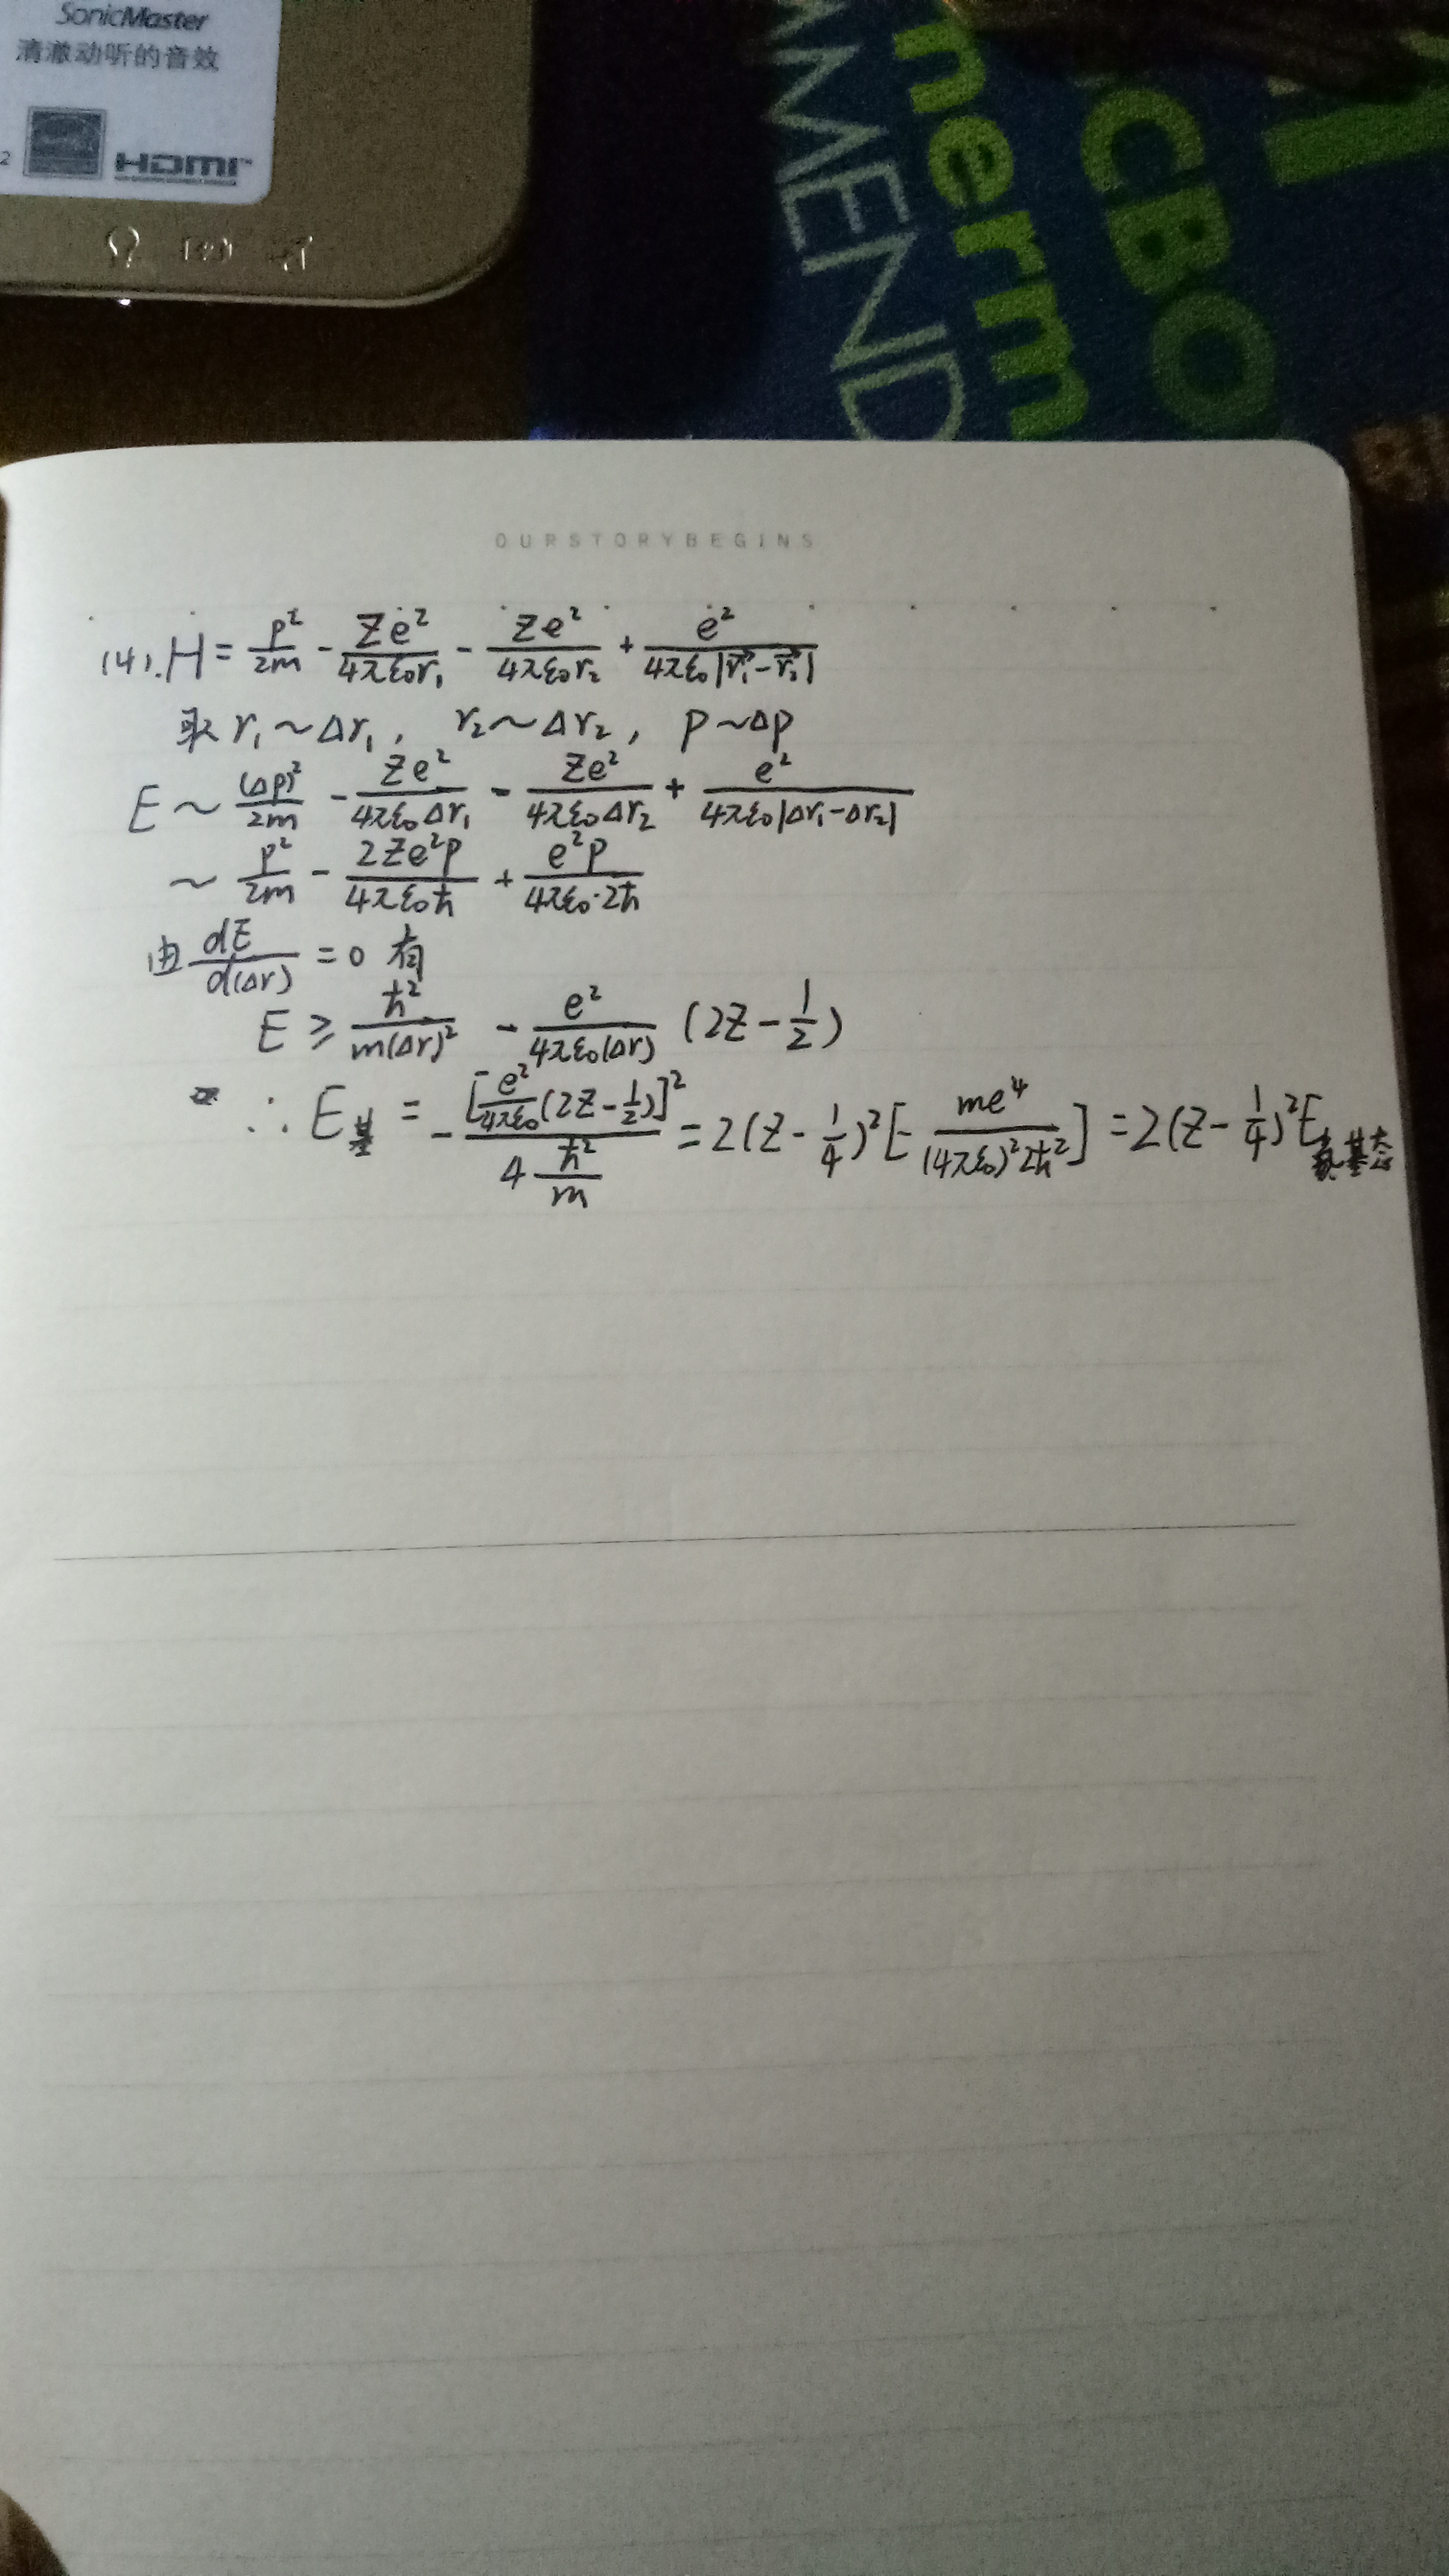 SonicMaster
清澈动听的音效
HDMI
MMEND
nerm
CBO
OURSTORYBEGINS
(4). H = p²/2m - Ze²/4πε₀r₁ - Ze²/4πε₀r₂ + e²/4πε₀|r⃗₁-r⃗₂|
取 r₁~Δr₁, r₂~Δr₂, p~Δp
E ~ (Δp)²/2m - Ze²/4πε₀Δr₁ - Ze²/4πε₀Δr₂ + e²/4πε₀|Δr₁-Δr₂|
~ p²/2m - 2Ze²p/4πε₀ħ + e²p/4πε₀·2ħ
由 dE/d(Δr) = 0 有
E ≥ ħ²/m(Δr)² - e²/4πε₀(Δr) (2Z - 1/2)
∴ E基 = -[e²/4πε₀(2Z - 1/2)]²/4ħ²/m = 2(Z - 1/4)²[-me⁴/(4πε₀)²2ħ²] = 2(Z - 1/4)²E氢基态